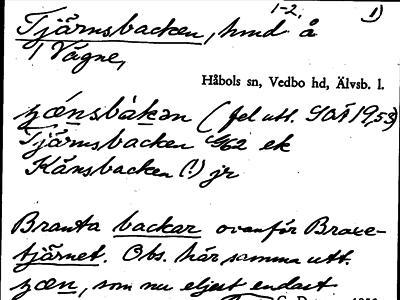 1-2. 1)
Tjärnsbacken, hmd å
1 Vägne,
Håbols sn, Vedbo hd, Älvsb. l.
(fel utt. SOÄ 19,53)
Tjärnsbacken 1/62 ek
Känsbacken (!) jr
Branta backar ovanför Braxe-
tjärnet. Obs. här, samma utt.
som nu eljest endast